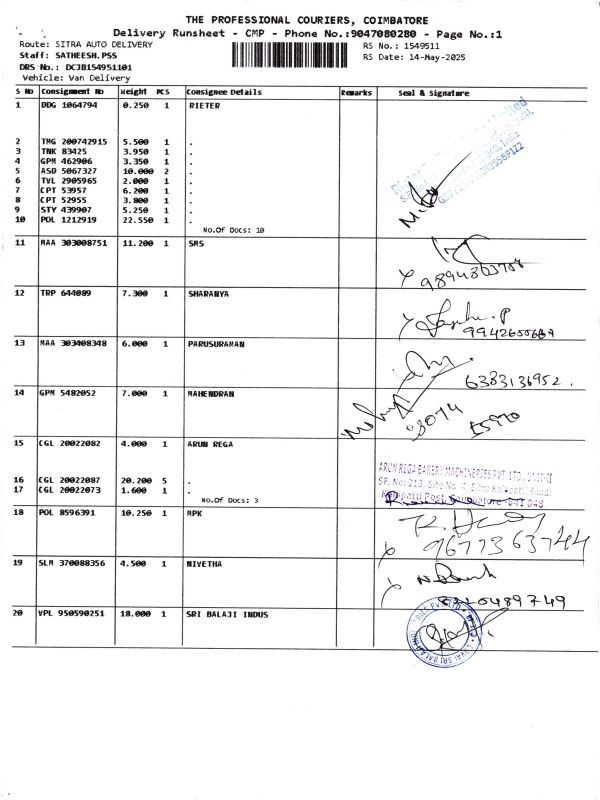 THE PROFESSIONAL COURIERS, COIMBATORE
Delivery Runsheet - CMP - Phone No.:9047080280 - Page No.:1
Route: SITRA AUTO DELIVERY
RS No.: 1549511
Staff: SATHEESH.PSS
RS Date: 14-May-2025
DRS No.: DCJB154951101
Vehicle: Van Delivery
S No Consignment No Weight PCS Consignee Details Remarks Seal & Signature
1 DDG 1064794 0.250 1 RIETER
2 TMG 200742915 5.500 1 .
3 TNK 83425 3.950 1 .
4 GPM 462906 3.350 1 .
5 ASD 5067327 10.000 2 .
6 TVL 2905965 2.000 1 .
7 CPT 53957 6.200 1 .
8 CPT 52955 3.800 1 .
9 STY 439907 5.250 1 .
10 POL 1212919 22.550 1 .
No.Of Docs: 10
11 MAA 303008751 11.200 1 SMS
12 TRP 644089 7.300 1 SHARANYA
13 MAA 303408348 6.000 1 PARUSURAMAN
6383136952.
14 GPM 5482052 7.000 1 MAHENDRAN
15 CGL 20022082 4.000 1 ARUN REGA
16 CGL 20022087 20.200 5 .
17 CGL 20022073 1.600 1 .
No.Of Docs: 3
ARUN REGA BAKERY MACHINERIES PVT. LTD.,
SF. No: 213, Site No. 4, Sitra Kalapatti Road,
Kalapatti Post, Coimbatore - 641 048
18 POL 8596391 10.250 1 MPK
9677363744
19 SLM 370088356 4.500 1 NIVETHA
20 VPL 950590251 18.000 1 SRI BALAJI INDUS